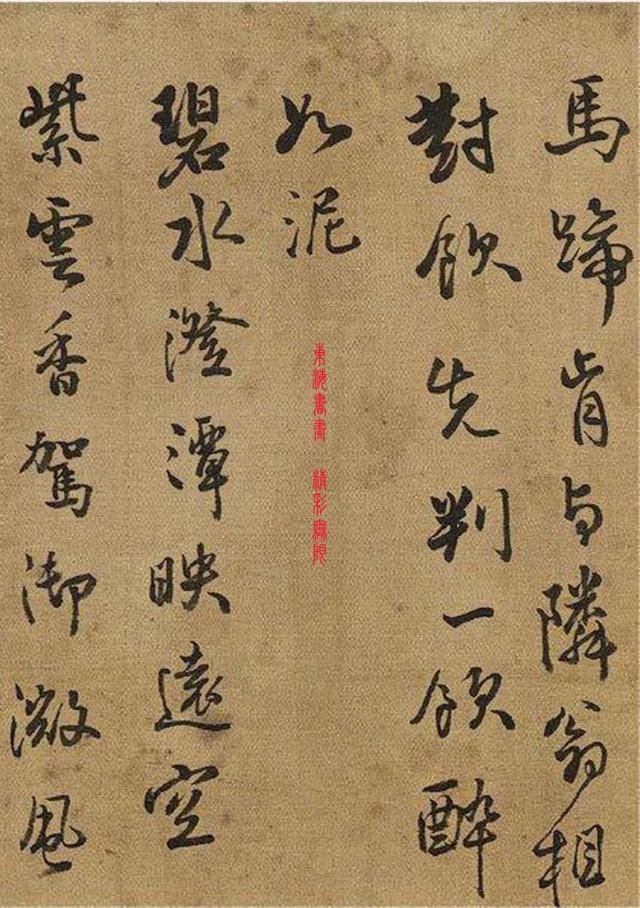 馬蹄肯与隣翁相
對飲先判一領醉
如泥
碧水澄潭映遠空
紫雲香駕御微風
東海書畫 精彩無限